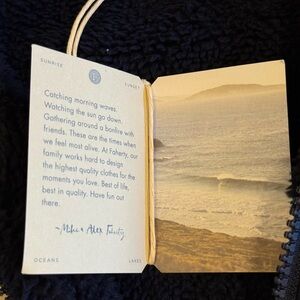 SUNRISE
SUNSET
Catching morning waves.
Watching the sun go down.
Gathering around a bonfire with
friends. These are the times when
we feel most alive. At Faherty, our
family works hard to design
the highest quality clothes for the
moments you love. Best of life,
best in quality. Have fun out
there.
~Mike + Alex Faherty
OCEANS
LAKES